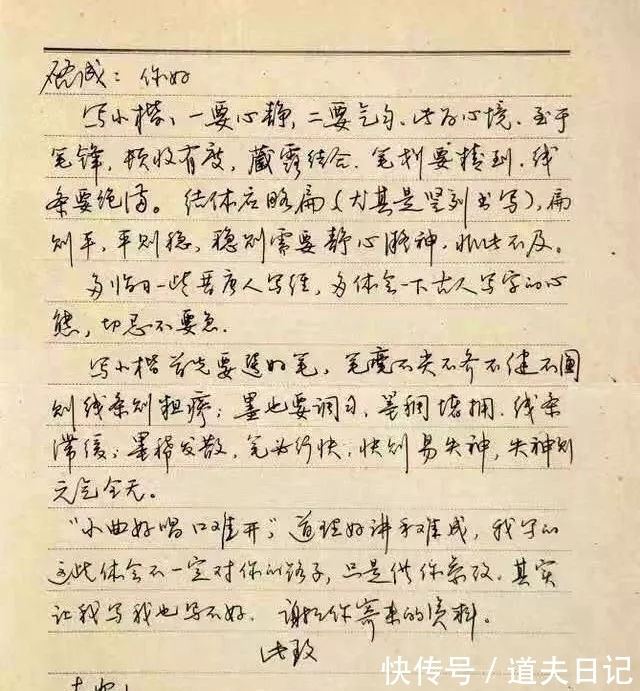 你好
写小楷,一要心静,二要气匀,此为心境。至于
笔锋,顿收有度,藏露结合,笔划要精到,线
条要饱满。结体应略扁(尤其是竖列书写),扁
则平,平则稳,稳则需要静心凝神,非此不及。
多临习一些晋唐人写经,多体会一下古人写字的心
态,切忌不要急。
写小楷首先要选好笔,笔度不尖不齐不健不圆
则线条则粗疏;墨也要调匀,墨稠堵拥,线条
滞缓;墨稀发散,笔必行快,快则易失神,失神则
元气全无。
"小曲好唱口难开",道理好讲手难成,我写的
这些体会不一定对你的路子,只是供你参考。其实
让我写我也写不好。谢谢你寄来的资料。
此致
快传号/道夫日记